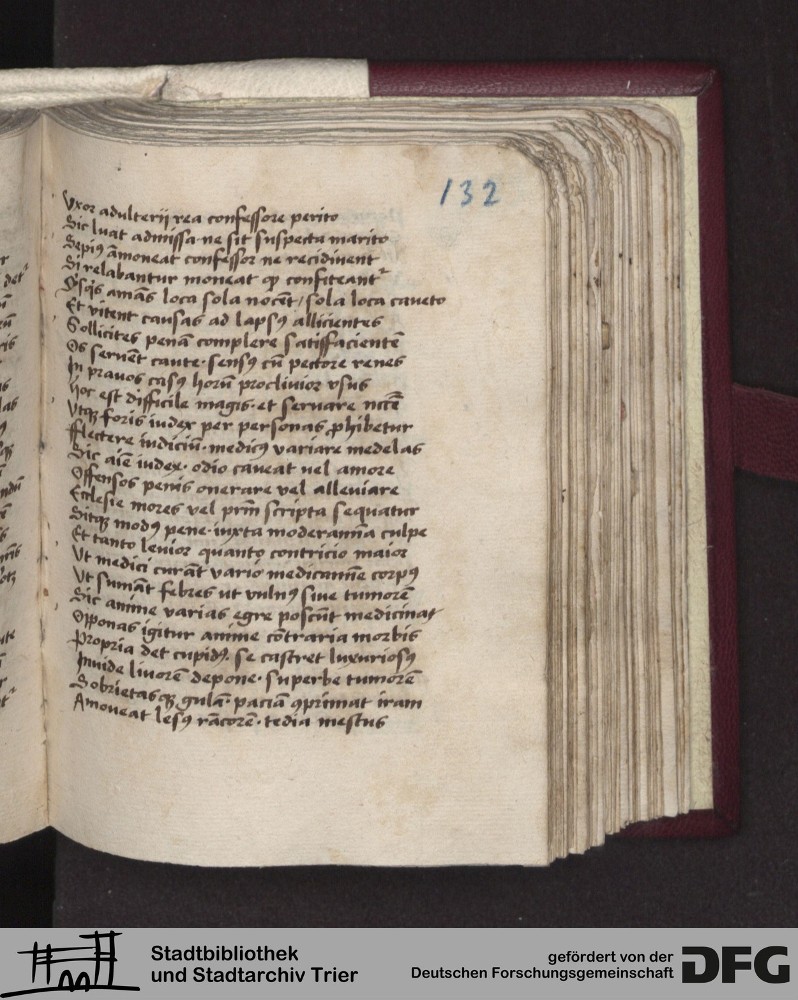 132
Vxor adulterij rea confessore perito
Sic luat admissa ne sit suspecta marito
Sepiꝰ amoneat confessor ne recidiuent
Si relabantur moneat ꝙ confiteant᷑
Qͥsqͥs amās loca sola nocēt / sola loca caueto
Et vitent causas ad lapsꝰ allicientes
Sollicites penā complere satisfacientē
Os seruēt caute · sensꝰ cū pectore renes
In prauos casꝰ horū procliuior vsus
Hoc est difficile magis · et seruare nccē
Vtqꝫ foris iudex per personas ꝓhibetur
Fflectere iudiciū · medicꝰ variare medelas
Sic aīe iudex · odio caueat uel amore
Offensos penis onerare vel alleuiare
Ecclesie mores vel prm̄ scripta sequatur
Sitqꝫ modꝰ pene · iuxta moderamīa culpe
Et tanto leuior quanto contricio maior
Vt medici curāt vario medicamīe corpꝰ
Vt sumāt febres ut vulnꝰ siue tumorē
Sic anime varias egre poscūt medicinas
Opponas igitur anime cōtraria morbis
Propria det cupidꝰ · se castret luxuriosꝰ
Inuide liuorē depone · superbe tumorē
Sobrietasqꝫ gulā · paciā ꝯprimat iram
Amoueat lesꝰ rācorē · tedia mestus
Stadtbibliothek
und Stadtarchiv Trier
gefördert von der
Deutschen Forschungsgemeinschaft
DFG